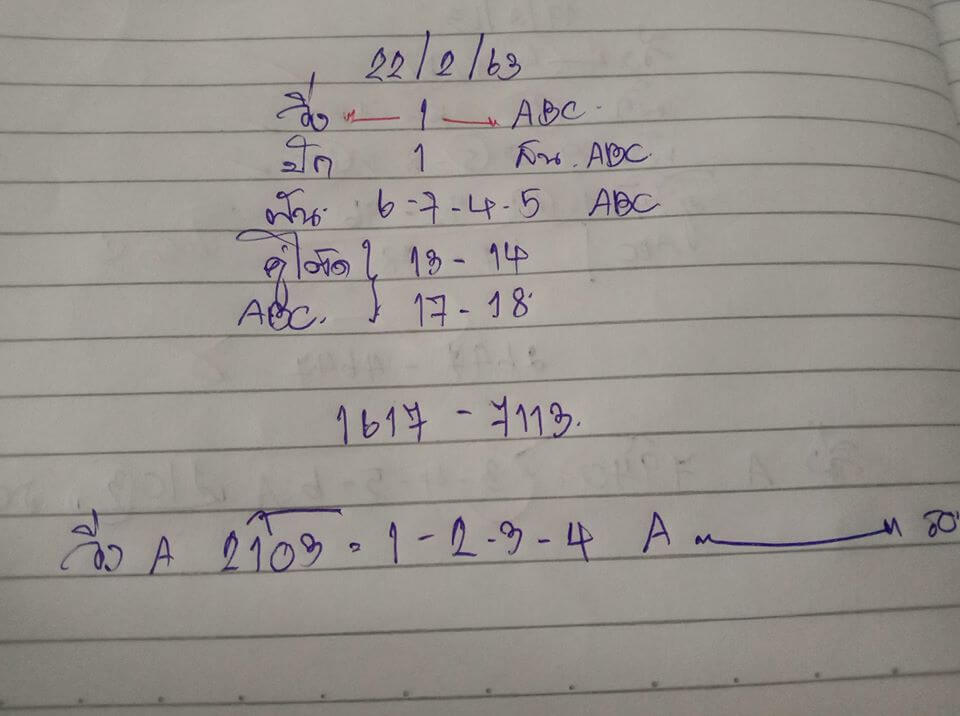 22/2/63
วิ่ง ← 1 → ABC.
ปัก 1 ABC.
ฟัน. 6-7-4-5 ABC
คู่โต๊ด } 13 - 14
ABC. } 17 - 18.
1617 - 7113.
วิ่ง A 2103 = 1 - 2 - 3 - 4 A